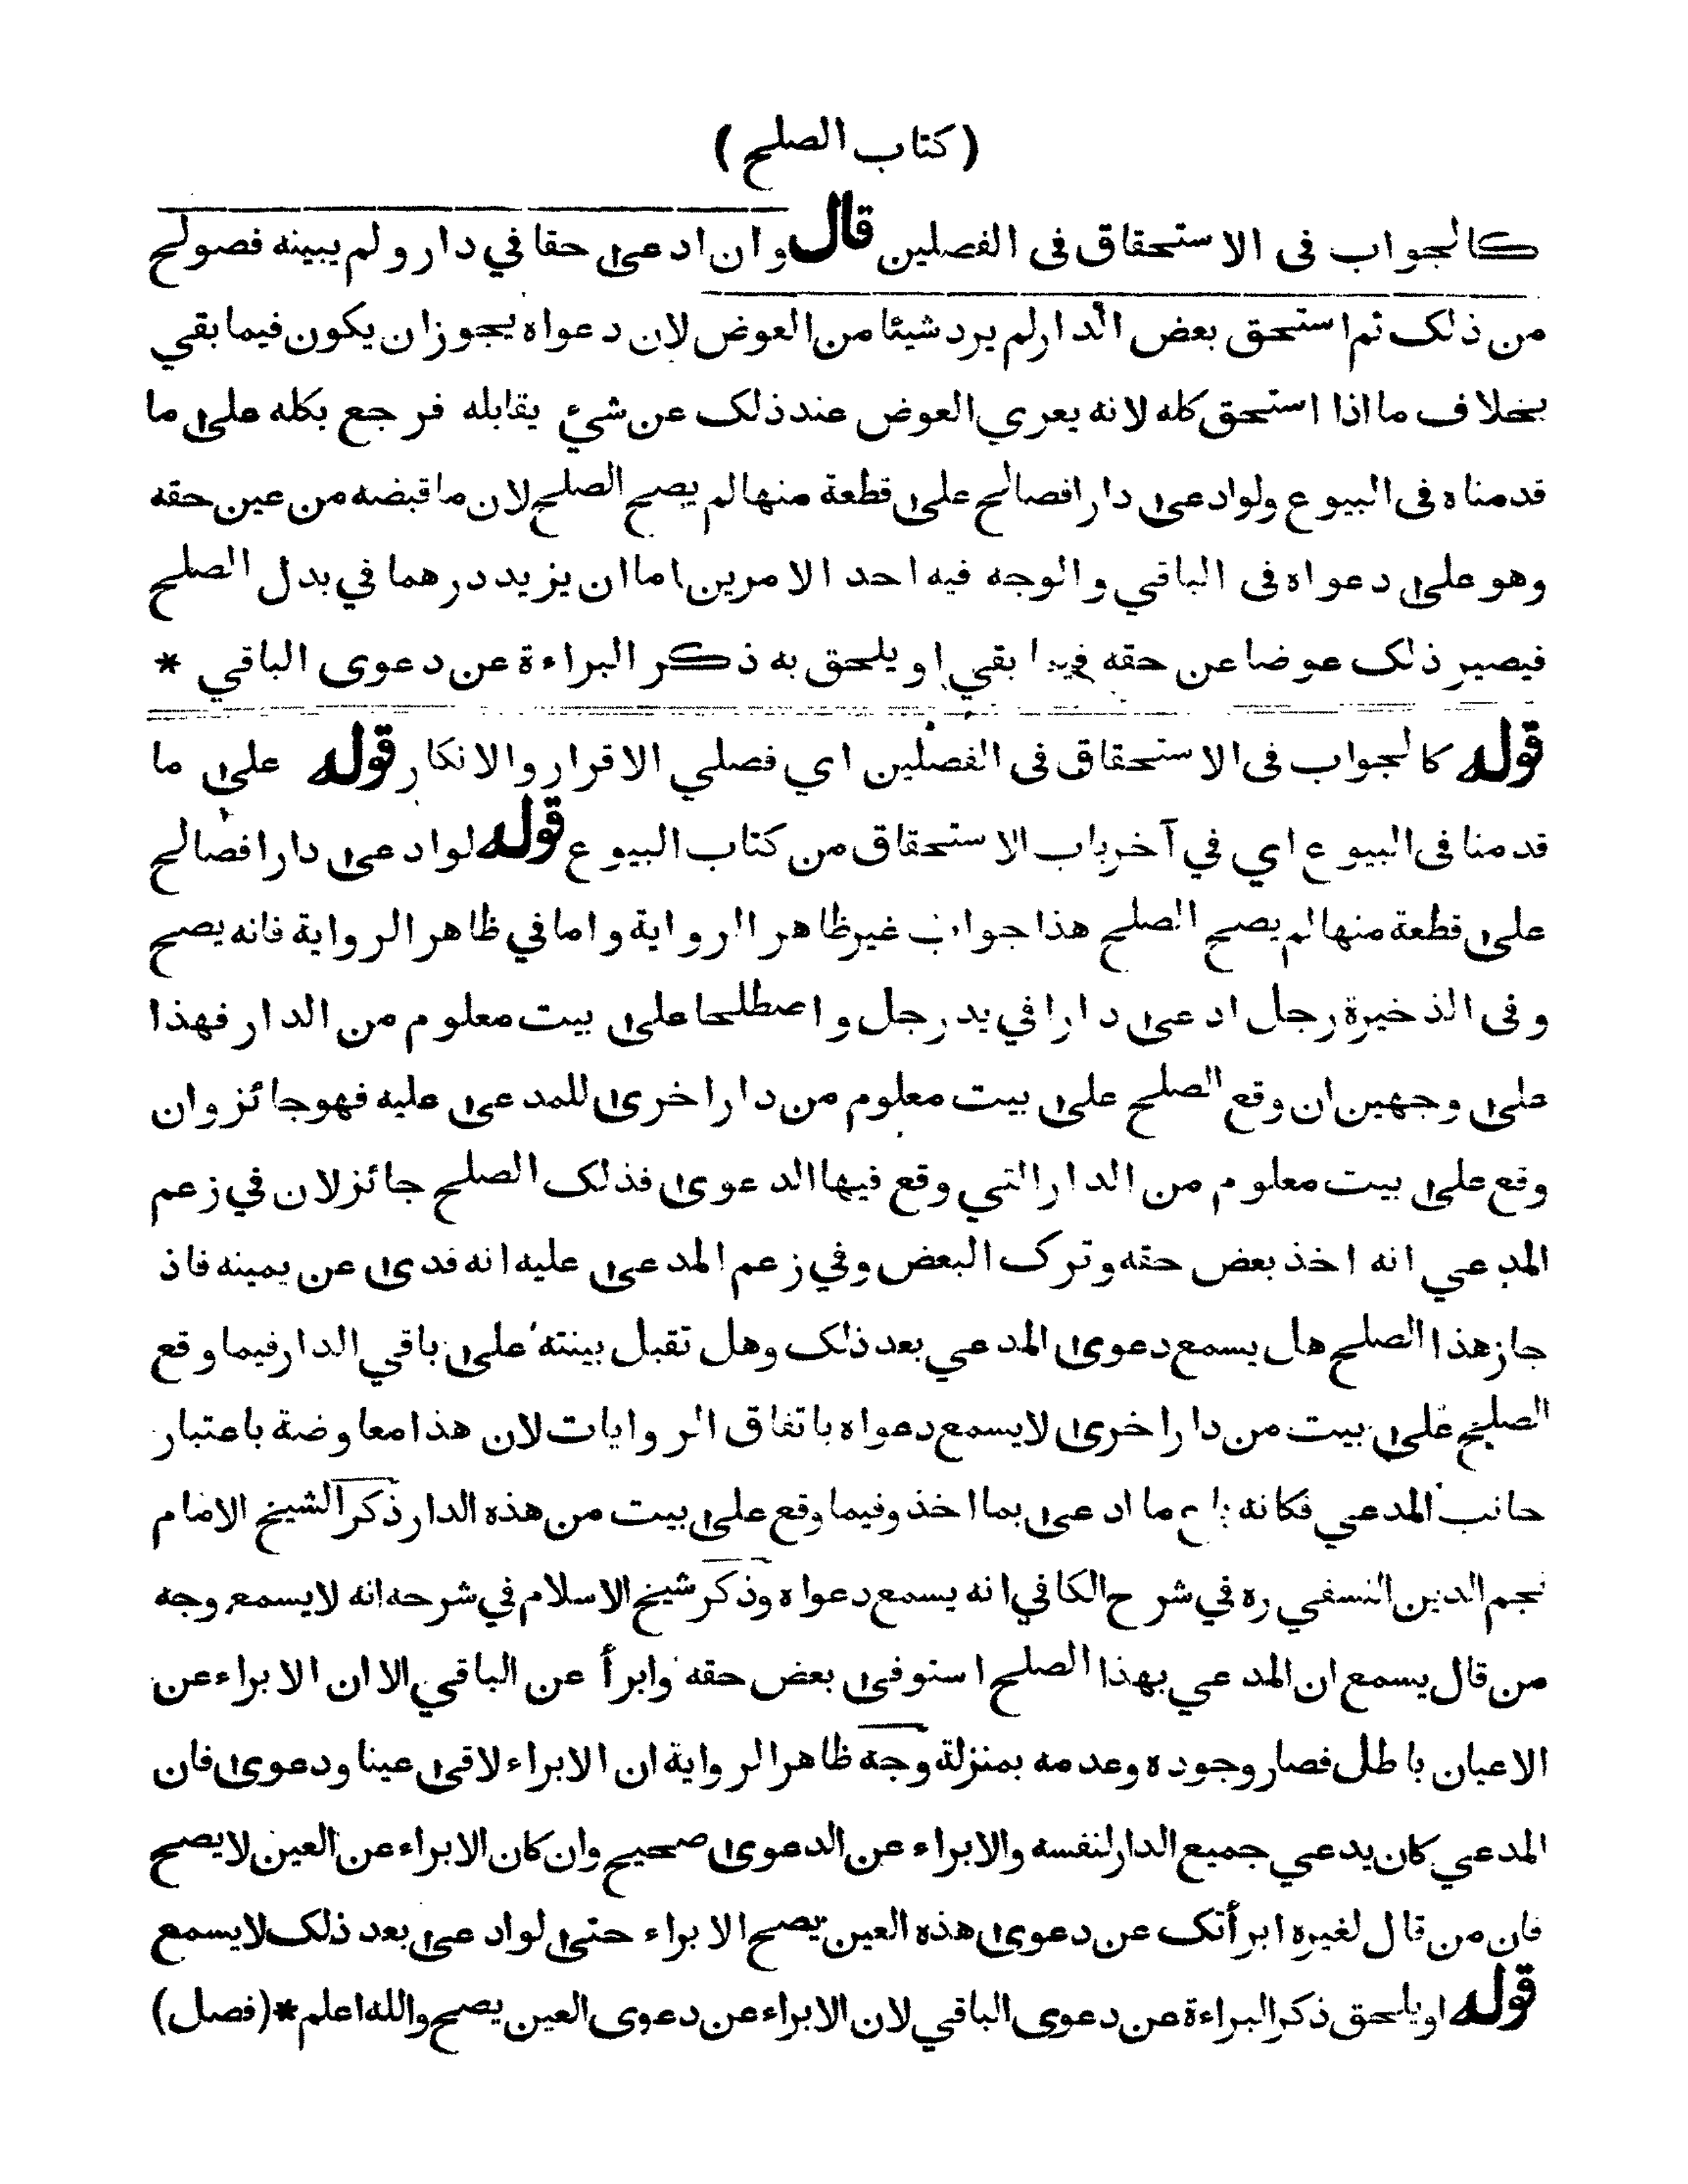 (كتاب الصلح)
كالجواب فى الاستحقاق فى الفصلين قال وان ادعى حقا في دار ولم يبينه فصولح
من ذلك ثم استحق بعض الدار لم يرد شيئا من العوض لان دعواه يجوز ان يكون فيما بقي
بخلاف ما اذا استحق كله لانه يعري العوض عند ذلك عن شيئ يقابله فرجع بكله على ما
قدمناه فى البيوع ولو ادعى دارا فصالح على قطعة منها لم يصح الصلح لان ما قبضه من عين حقه
وهو على دعواه فى الباقي والوجه فيه احد الامرين اما ان يزيد درهما في بدل الصلح
فيصير ذلك عوضا عن حقه فيما بقي او يلحق به ذكر البراءة عن دعوى الباقي *
قوله كالجواب فى الاستحقاق فى الفصلين اي فصلي الاقرار والانكار قوله على ما
قدمنا فى البيوع اي في آخر باب الاستحقاق من كتاب البيوع قوله لو ادعى دارا فصالح
على قطعة منها لم يصح الصلح هذا جواب غير ظاهر الرواية واما في ظاهر الرواية فانه يصح
وفى الذخيرة رجل ادعى دارا في يد رجل واصطلحا على بيت معلوم من الدار فهذا
على وجهين ان وقع الصلح على بيت معلوم من دار اخرى للمدعى عليه فهو جائز وان
وقع على بيت معلوم من الدار التي وقع فيها الدعوى فذلك الصلح جائز لان في زعم
المدعي انه اخذ بعض حقه وترك البعض وفي زعم المدعى عليه انه فدى عن يمينه فاذ
جاز هذا الصلح هل يسمع دعوى المدعي بعد ذلك وهل تقبل بينته على باقي الدار فيما وقع
الصلح على بيت من دار اخرى لا يسمع دعواه باتفاق الروايات لان هذا معاوضة باعتبار
جانب المدعي فكانه باع ما ادعى بما اخذ وفيما وقع على بيت من هذه الدار ذكر الشيخ الامام
نجم الدين النسفي ره في شرح الكافي انه يسمع دعواه وذكر شيخ الاسلام في شرحه انه لا يسمع وجه
من قال يسمع ان المدعي بهذا الصلح استوفى بعض حقه وابرأ عن الباقي الا ان الابراء عن
الاعيان باطل فصار وجوده وعدمه بمنزلة وجه ظاهر الرواية ان الابراء لاقى عينا ودعوى فان
المدعي كان يدعي جميع الدار لنفسه والابراء عن الدعوى صحيح وان كان الابراء عن العين لا يصح
فان من قال لغيره ابرأتك عن دعوى هذه العين يصح الابراء حتى لو ادعى بعد ذلك لا يسمع
قوله او يلحق ذكر البراءة عن دعوى الباقي لان الابراء عن دعوى العين يصح والله اعلم * (فصل)